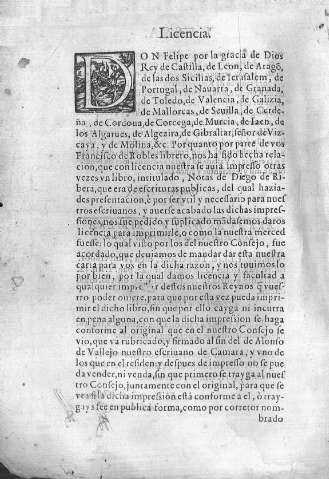 Licencia.
DON Felipe por la gracia de Dios
Rey de Castilla, de Leon, de Aragõ,
de las dos Sicilias, de Ierusalem, de
Portugal, de Nauarra, de Granada,
de Toledo, de Valencia, de Galizia,
de Mallorcas, de Seuilla, de Cerde-
ña, de Cordoua, de Corcega, de Murcia, de Iaen, de
los Algarues, de Algezira, de Gibraltar, señor de Viz-
caya, y de Molina, &c. Por quanto por parte de vos
Francisco de Robles librero, nos ha sido hecha rela-
cion, que con licencia nuestra se auia impresso otras
vezes vn libro, intitulado, Notas de Diego de Ri-
bera, que era de escrituras publicas, del qual hazia-
des presentacion, è por ser vtil y necessario para nue-
stros escriuanos, y auerse acabado las dichas impres-
siones, nos fue pedido y suplicado mãdassemos daros
licencia para imprimirle, o como la nuestra merced
fuesse: lo qual visto por los del nuestro Consejo, fue
acordado, que deuiamos de mandar dar esta nuestra
carta para vos en la dicha razon, y nos tuuimoslo
por bien, por la qual damos licencia y facultad a
qualquier impressor destos nuestros Reynos q̃ vues-
tro poder ouiere, para que por esta vez pueda impri-
mir el dicho libro, sin que por ello cayga ni incurra
en pena alguna, con que la dicha impression se haga
conforme al original que en el nuestro Consejo se
vio, que va rubricado, y firmado al fin del de Alonso
de Vallejo nuestro escriuano de Camara, y vno de
los que en el residen: y despues de impresso no se pue-
da vender, ni venda, sin que primero se trayga al nues-
tro Consejo, juntamente con el original, para que se
vea si la dicha impression està conforme a el, ò tray-
gays fee en publica forma, como por corretor nom-
brado